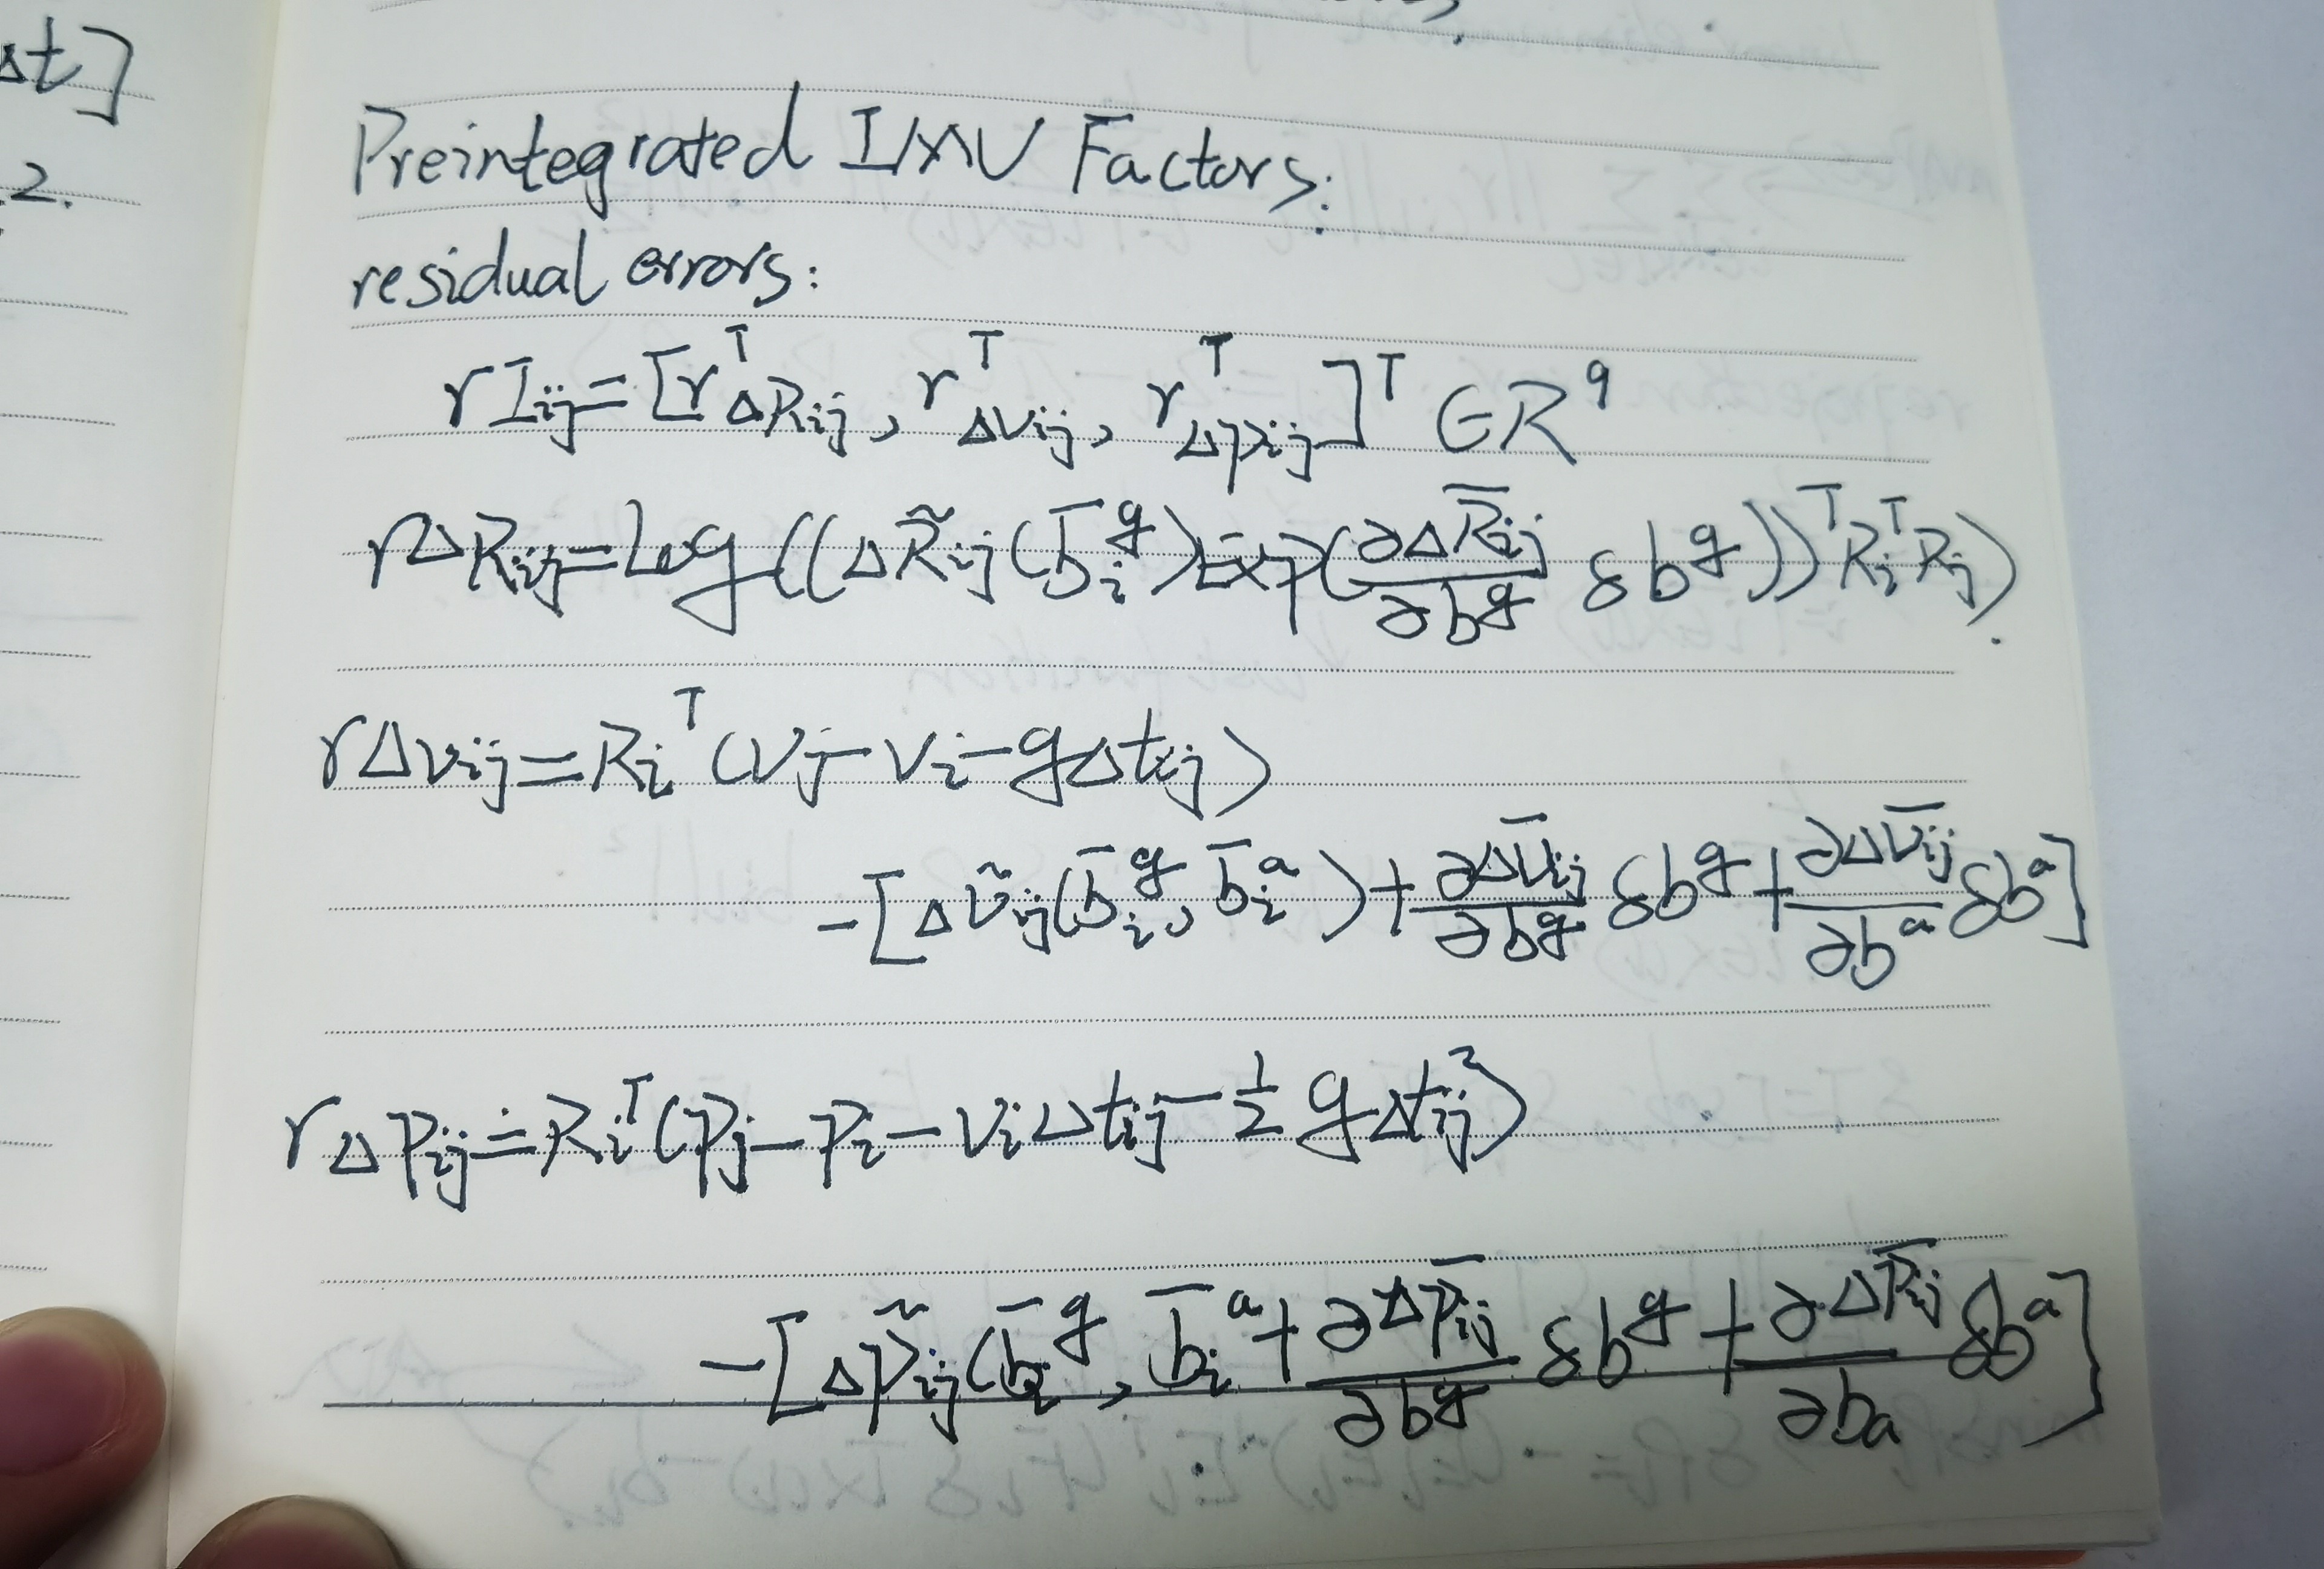 Δt]
.2.
Preintegrated IMU Factors:
residual errors:
rI_ij = [r^T_ΔR_ij, r^T_Δv_ij, r^T_Δp_ij]^T ∈ R^9
rΔR_ij = Log((ΔR̃_ij(b̄_i^g)Exp(∂ΔR̄_ij/∂b^g δb^g))^T R_i^T R_j).
rΔv_ij = R_i^T (v_j - v_i - gΔt_ij)
-[Δṽ_ij(b̄_i^g, b̄_i^a) + ∂Δv̄_ij/∂b^g δb^g + ∂Δv̄_ij/∂b^a δb^a]
rΔp_ij = R_i^T (p_j - p_i - v_iΔt_ij - 1/2 gΔt_ij^2)
-[Δp̃_ij(b̄_i^g, b̄_i^a + ∂Δp̄_ij/∂b^g δb^g + ∂Δp̄_ij/∂b_a δb^a]